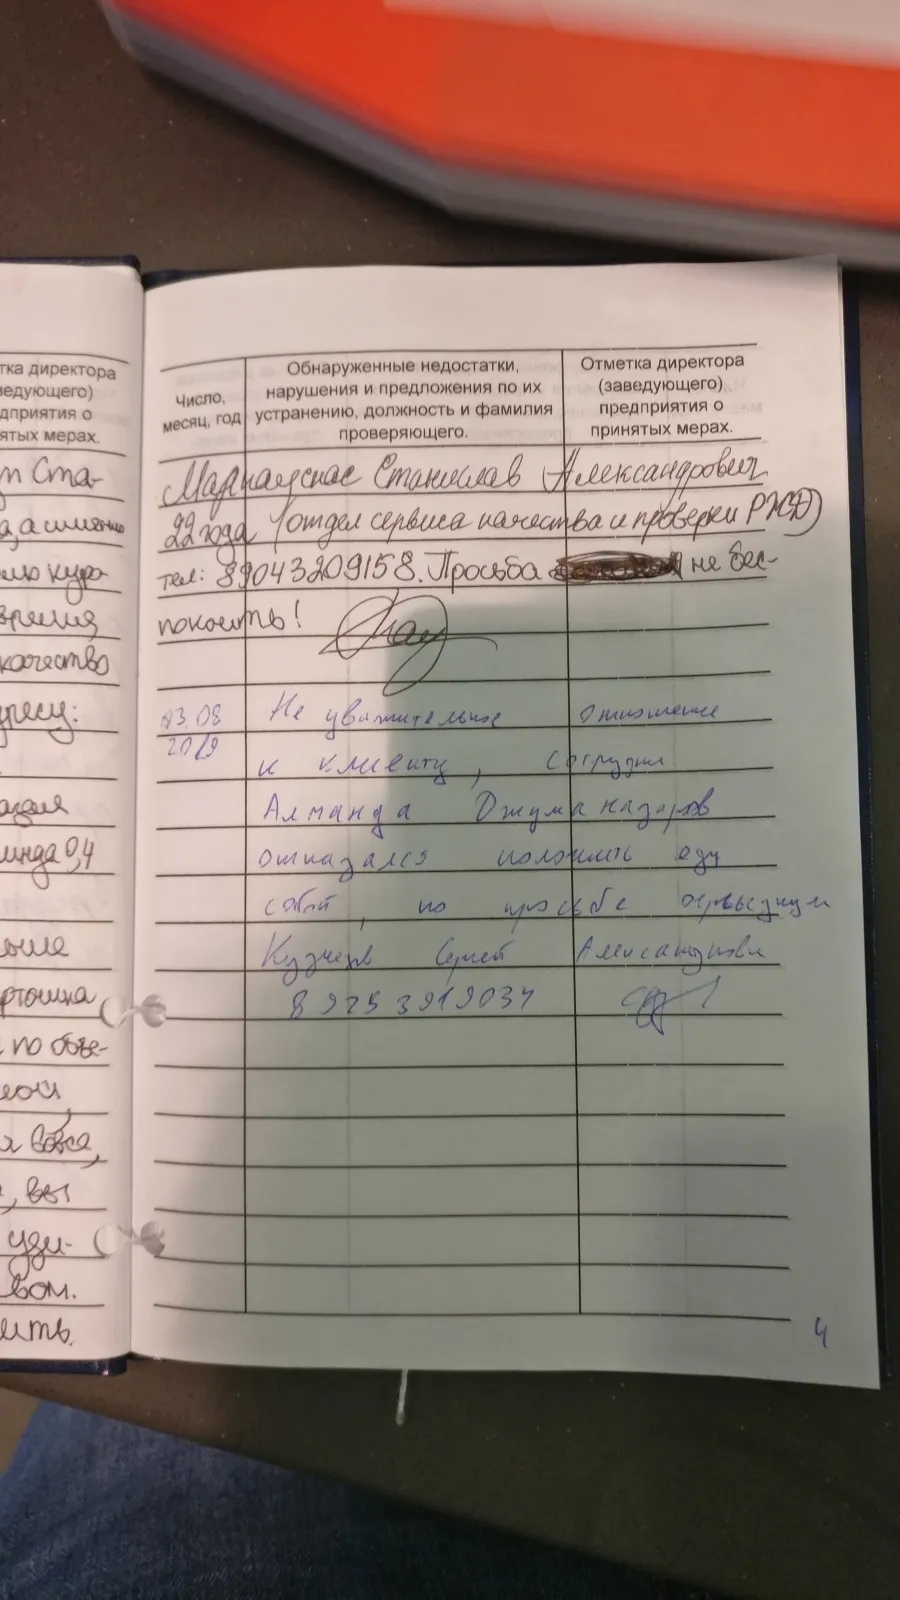 тка директора
ведующего)
дприятия о
ятых мерах.
т Ста-
а, а именно
время
качество
ресу:
0,4
ртошка
по объе-
вы
уди-
вом.
ить.
Число,
месяц, год
Обнаруженные недостатки,
нарушения и предложения по их
устранению, должность и фамилия
проверяющего.
Отметка директора
(заведующего)
предприятия о
принятых мерах.
Станислав Александрович
22 года (отдел сервиса качества и проверки РЖД)
тел: 89043209158. Просьба не бес-
покоить!
03.08 Не уважительное отношение
2019 к клиенту, сотрудник
Алманда Джуманазаров
отказался положить еду
собой, по просьбе
Кузнецов Сергей Александрович
89253919034
4